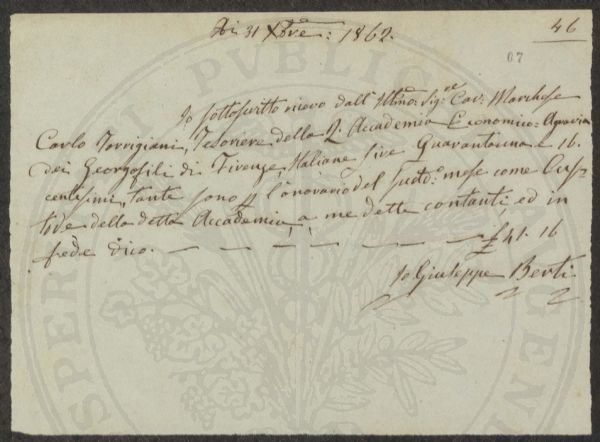 Di 31 Xbre: 1862.
46
67
Io sottoscritto ricevo dall' Illmo: Sigre Cav: Marchese
Carlo Torrigiani, Tesoriere della R. Accademia Economico-Agraria
dei Georgofili di Firenze, Italiane Lire Quarantuna e 16.
centesimi, tante sono p l'onorario del suddo: mese come Cus-
tode della detta Accademia, a me dette contanti, ed in
fede dico. — — — — — — £ 41. 16
Io Giuseppe Berti